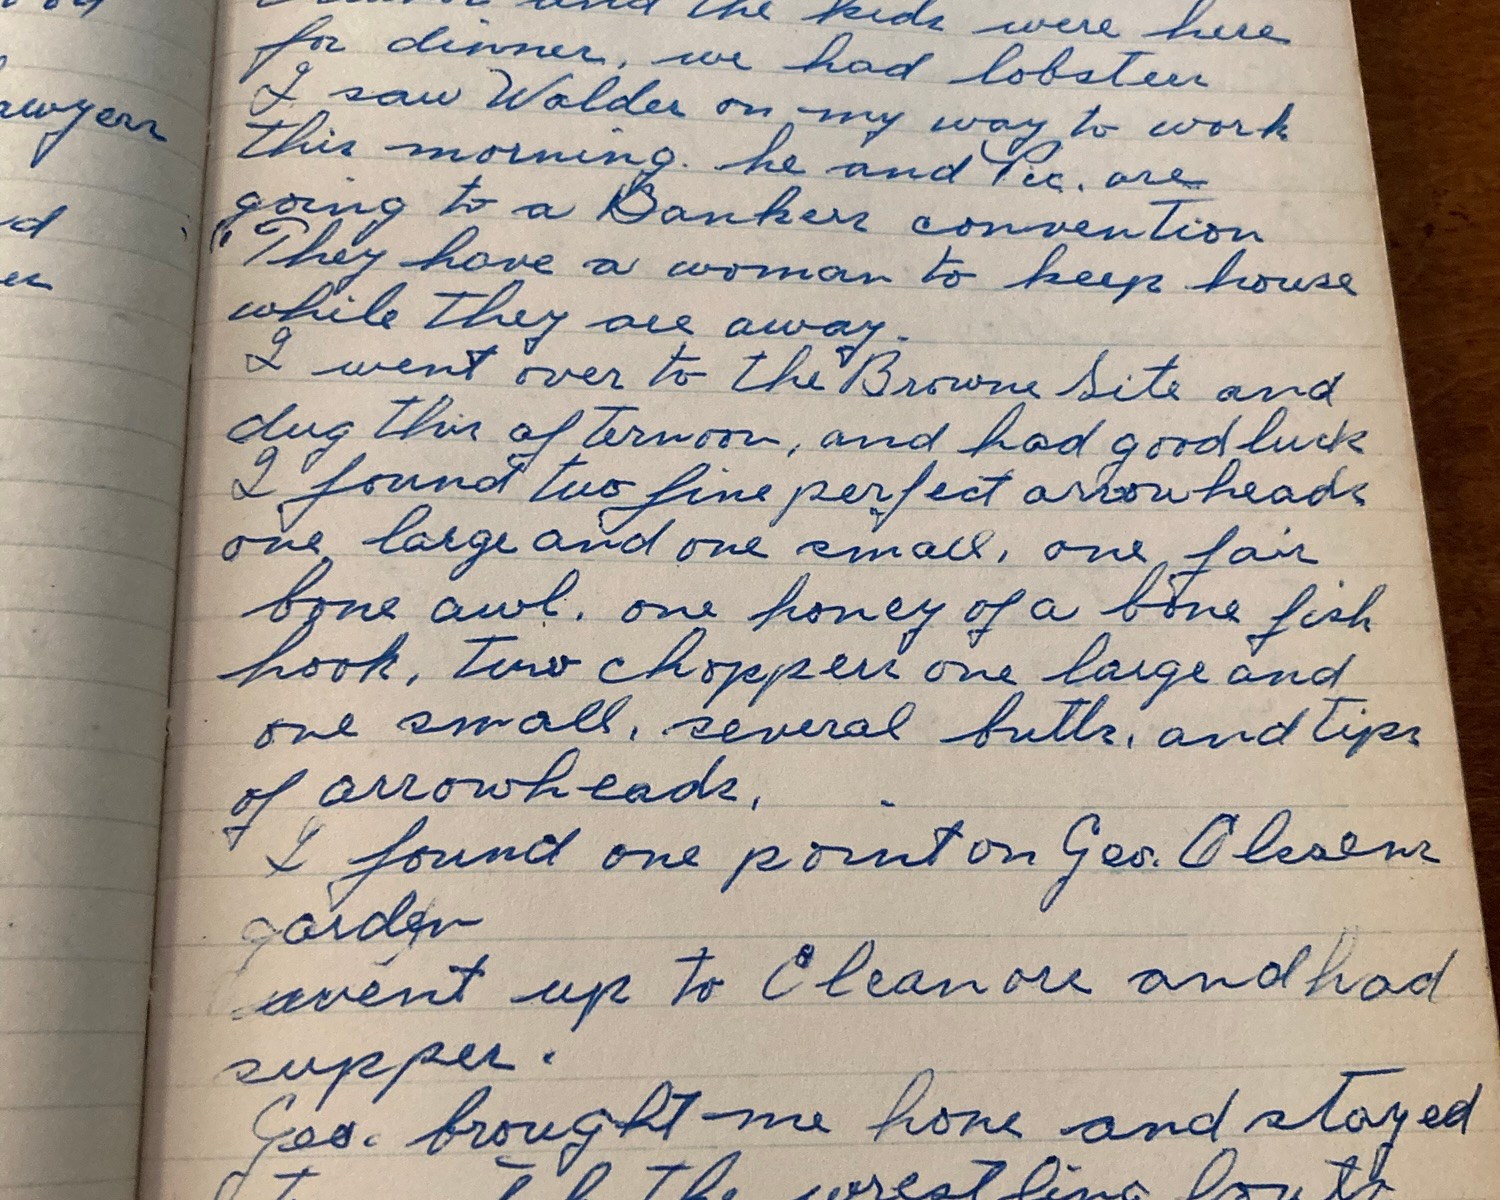 and the kids were here
for dinner, we had lobster
I saw Walder on my way to work
this morning. he and Pic. are
going to a Bankers convention
They have a woman to keep house
while they are away.
I went over to the Browne Site and
dug this afternoon, and had good luck
I found two fine perfect arrowheads
one large and one small, one fair
bone awl, one honey of a bone fish
hook, two choppers one large and
one small, several butts, and tips
of arrowheads,
I found one point on Geo. Olesens
garden
went up to Eleanore and had
supper.
Geo. brought me home and stayed
the wrestling bouts